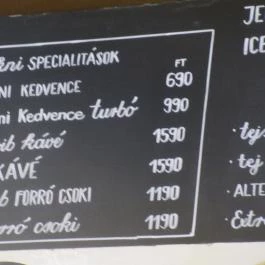 SPECIALITÁSOK FT
NI KEDVENCE 690
NI Kedvence turbó 990
kávé 1590
KÁVÉ 1590
FORRÓ CSOKI 1190
csoki 1190
JE
ICE
· tej
· tej
· ALTE
· Extr